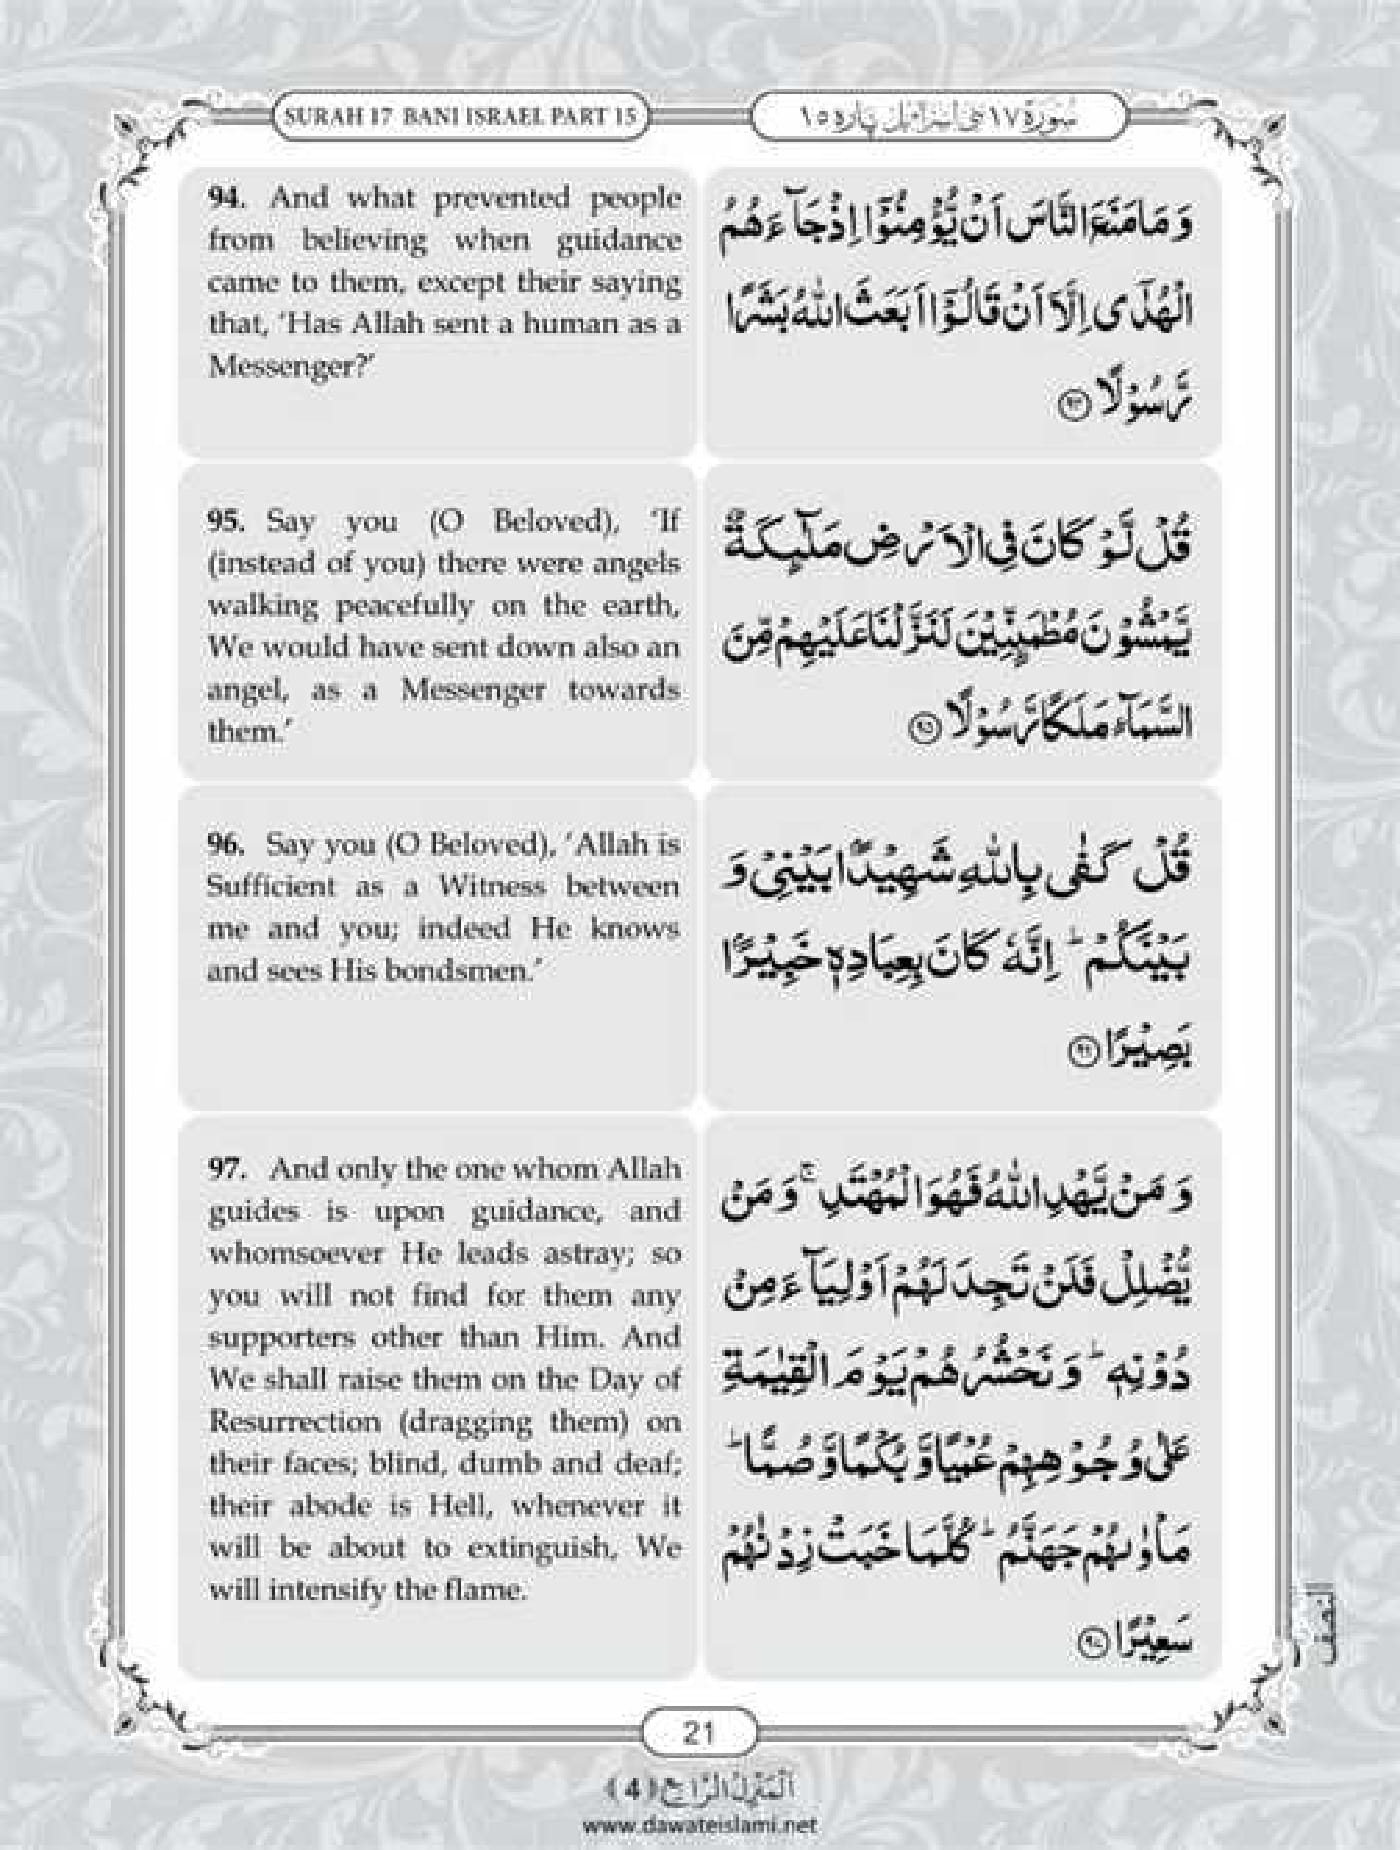 SURAH 17 BANI ISRAEL PART 15
سُورَة ١٧ بنی اسرائیل پاره ١٥
94. And what prevented people
from believing when guidance
came to them, except their saying
that, ‘Has Allah sent a human as a
Messenger?’
وَ مَا مَنَعَ النَّاسَ اَنْ یُّؤْمِنُوْۤا اِذْ جَآءَهُمُ
الْهُدٰۤى اِلَّاۤ اَنْ قَالُوْۤا اَبَعَثَ اللّٰهُ بَشَرًا
رَّسُوْلًا ﴿۹۴﴾
95. Say you (O Beloved), ‘If
(instead of you) there were angels
walking peacefully on the earth,
We would have sent down also an
angel, as a Messenger towards
them.’
قُلْ لَّوْ كَانَ فِی الْاَرْضِ مَلٰٓىٕكَةٌ
یَّمْشُوْنَ مُطْمَىٕنِّیْنَ لَنَزَّلْنَا عَلَیْهِمْ مِّنَ
السَّمَآءِ مَلَكًا رَّسُوْلًا ﴿۹۵﴾
96. Say you (O Beloved), ‘Allah is
Sufficient as a Witness between
me and you; indeed He knows
and sees His bondsmen.’
قُلْ كَفٰى بِاللّٰهِ شَهِیْدًۢا بَیْنِیْ وَ
بَیْنَكُمْ ؕ اِنَّهٗ كَانَ بِعِبَادِهٖ خَبِیْرًۢا
بَصِیْرًا ﴿۹۶﴾
97. And only the one whom Allah
guides is upon guidance, and
whomsoever He leads astray; so
you will not find for them any
supporters other than Him. And
We shall raise them on the Day of
Resurrection (dragging them) on
their faces; blind, dumb and deaf;
their abode is Hell, whenever it
will be about to extinguish, We
will intensify the flame.
وَ مَنْ یَّهْدِ اللّٰهُ فَهُوَ الْمُهْتَدِ ۚ وَ مَنْ
یُّضْلِلْ فَلَنْ تَجِدَ لَهُمْ اَوْلِیَآءَ مِنْ
دُوْنِهٖ ؕ وَ نَحْشُرُهُمْ یَوْمَ الْقِیٰمَةِ
عَلٰى وُجُوْهِهِمْ عُمْیًا وَّ بُكْمًا وَّ صُمًّا ؕ
مَاْوٰىهُمْ جَهَنَّمُ ؕ كُلَّمَا خَبَتْ زِدْنٰهُمْ
سَعِیْرًا ﴿۹۷﴾
النصف
21
اَلْمَنْزِلُ الرَّابِعُ (4)
www.dawateislami.net